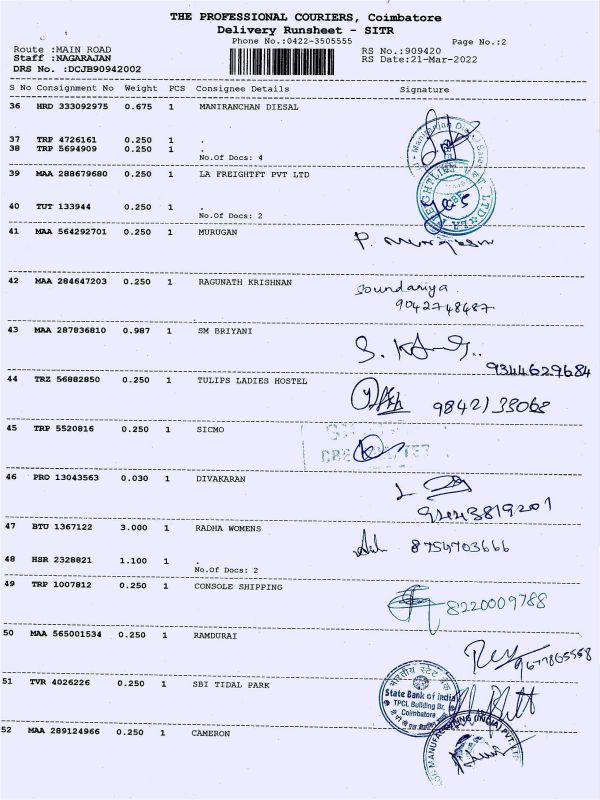 THE PROFESSIONAL COURIERS, Coimbatore
Delivery Runsheet - SITR
Phone No.:0422-3505555
Page No.:2
Route :MAIN ROAD
RS No.:909420
Staff :NAGARAJAN
RS Date:21-Mar-2022
DRS No. :DCJB90942002
S No Consignment No Weight PCS Consignee Details Signature
36 HRD 333092975 0.675 1 MANIRANCHAN DIESAL
37 TRP 4726161 0.250 1 .
38 TRP 5694909 0.250 1 .
No.Of Docs: 4
39 MAA 288679680 0.250 1 LA FREIGHTFT PVT LTD
40 TUT 133944 0.250 1 .
No.Of Docs: 2
41 MAA 564292701 0.250 1 MURUGAN
P. Murugesan
42 MAA 284647203 0.250 1 RAGUNATH KRISHNAN
Soundariya.
9042748487
43 MAA 287836810 0.987 1 SM BRIYANI
9344629684
44 TRZ 56882850 0.250 1 TULIPS LADIES HOSTEL
45 TRP 5520816 0.250 1 SICMO
46 PRO 13043563 0.030 1 DIVAKARAN
47 BTU 1367122 3.000 1 RADHA WOMENS
8754703666
48 HSR 2328821 1.100 1 .
No.Of Docs: 2
49 TRP 1007812 0.250 1 CONSOLE SHIPPING
8220009788
50 MAA 565001534 0.250 1 RAMDURAI
9677865558
51 TVR 4026226 0.250 1 SBI TIDAL PARK
भारतीय स्टेट बैंक
State Bank of India
TPCL Building Br.
Coimbatore
52 MAA 289124966 0.250 1 CAMERON
MANUFACTURING (INDIA) PVT. LTD